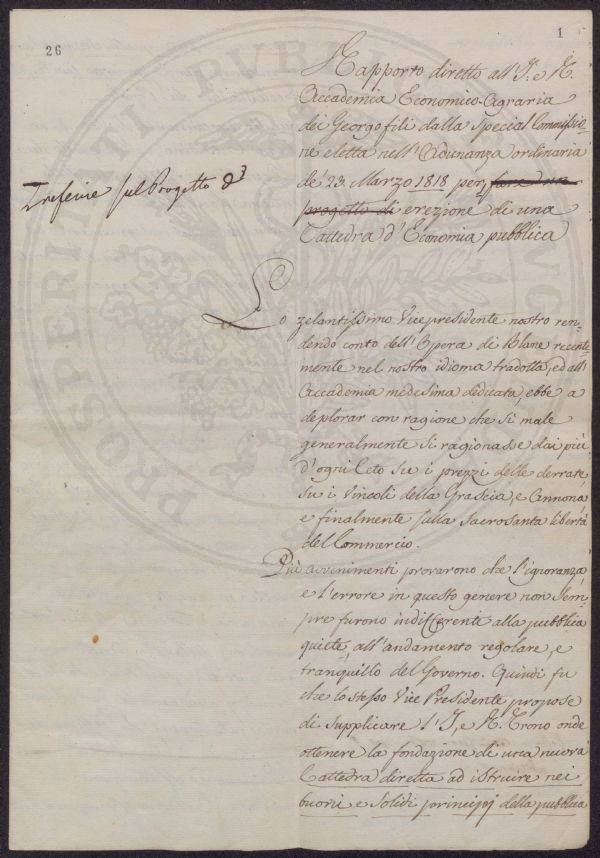 26
1
Rapporto diretto all'I. e R.
Accademia Economico-Agraria
dei Georgofili dalla Special Commissio=
ne eletta nell'Adunanza ordinaria
de' 23. Marzo 1818 per fare un
progetto di erezione di una
Cattedra d'Economia pubblica
sul Progetto
Lo zelantissimo Vice presidente nostro ren=
dendo conto dell'Opera di Blanc recente=
mente nel nostro idioma tradotta, ed all'
Accademia medesima dedicata, ebbe a
deplorar con ragione che sì male
generalmente si ragionasse dai più
d'ogni Ceto su i prezzi delle derrate,
su i Vincoli della Grascia, e Annona
e finalmente sulla sacrosanta libertà
del Commercio.
Più avvenimenti provarono che l'ignoranza
e l'errore in questo genere non sem=
pre furono indifferente alla pubblica
quiete, all'andamento regolare, e
tranquillo del Governo. Quindi fu
che lo stesso Vice Presidente propose
di supplicare l'I, e R. Trono onde
ottenere la fondazione di una nuova
Cattedra diretta ad istruire nei
buoni e solidi principj della pubblica
PROSPERITATI PUBLICAE AUG